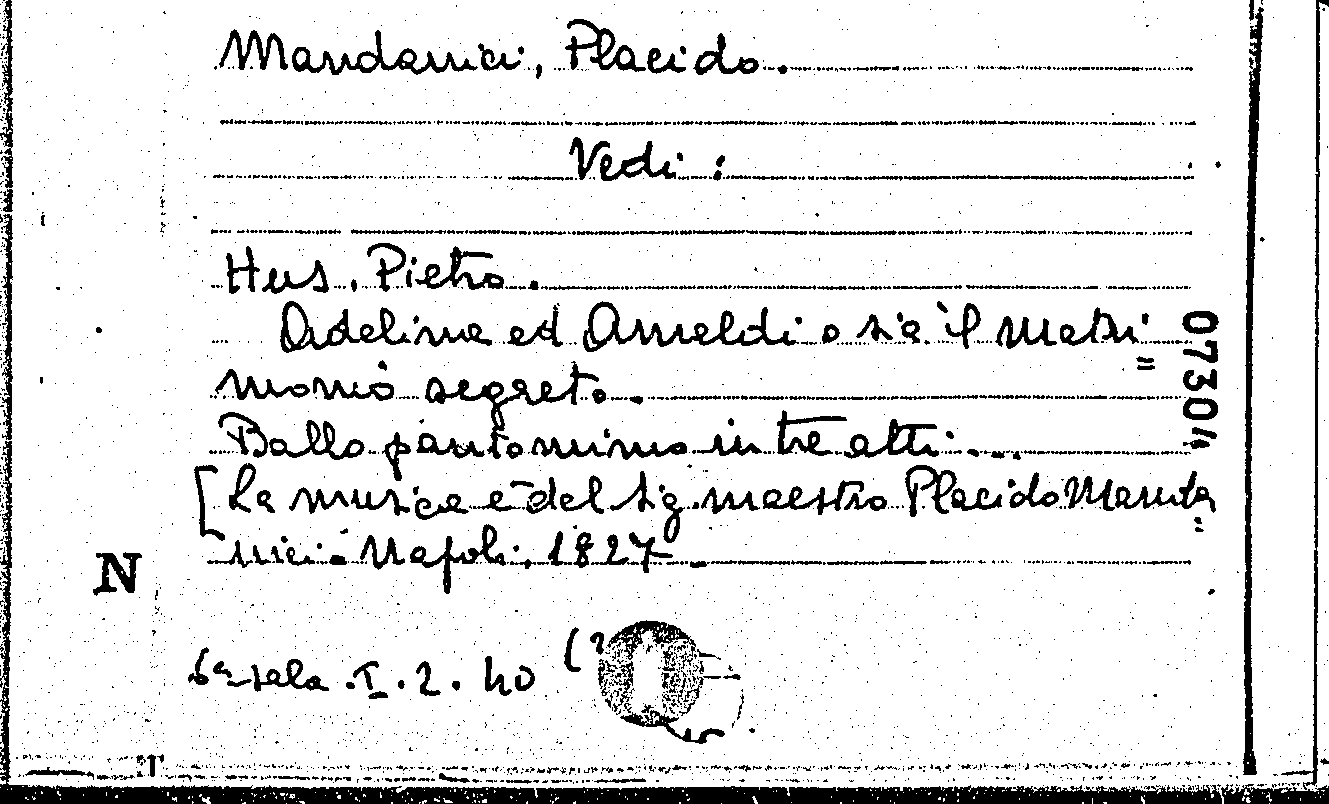 Mandanici, Placido.
Vedi:
Hus, Pietro.
Adelina ed Arnaldi o sia il matri=
monio segreto.
Ballo pantomimo in tre atti...
[La musica è del sig. maestro Placido Manda=
nici. Napoli, 1827
N
6ª sala. I. 2. 40 (2
07304